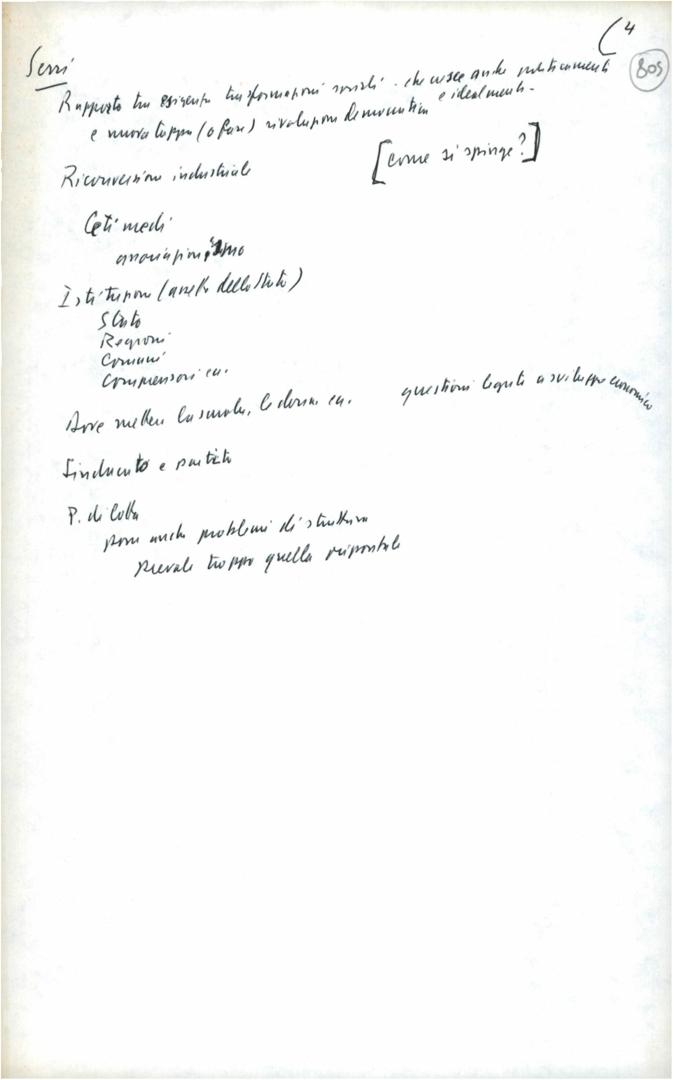 (4
805
Serri
Rapporto tra esigenza trasformazioni sociali - che cresce anche politicamente
e idealmente -
e nuova tappa (o fase) rivoluzione democratica
[come si spinge?]
Riconversione industriale
Ceti medi
associazionismo
Istituzioni (assetto dello Stato)
Stato
Regioni
Comuni
Comprensori ecc.
Dove mettere la scuola, le donne ecc.
questioni legate a sviluppo economico
Sindacato e partiti
P. di lotta
pone anche problemi di struttura
Prevale troppo quella